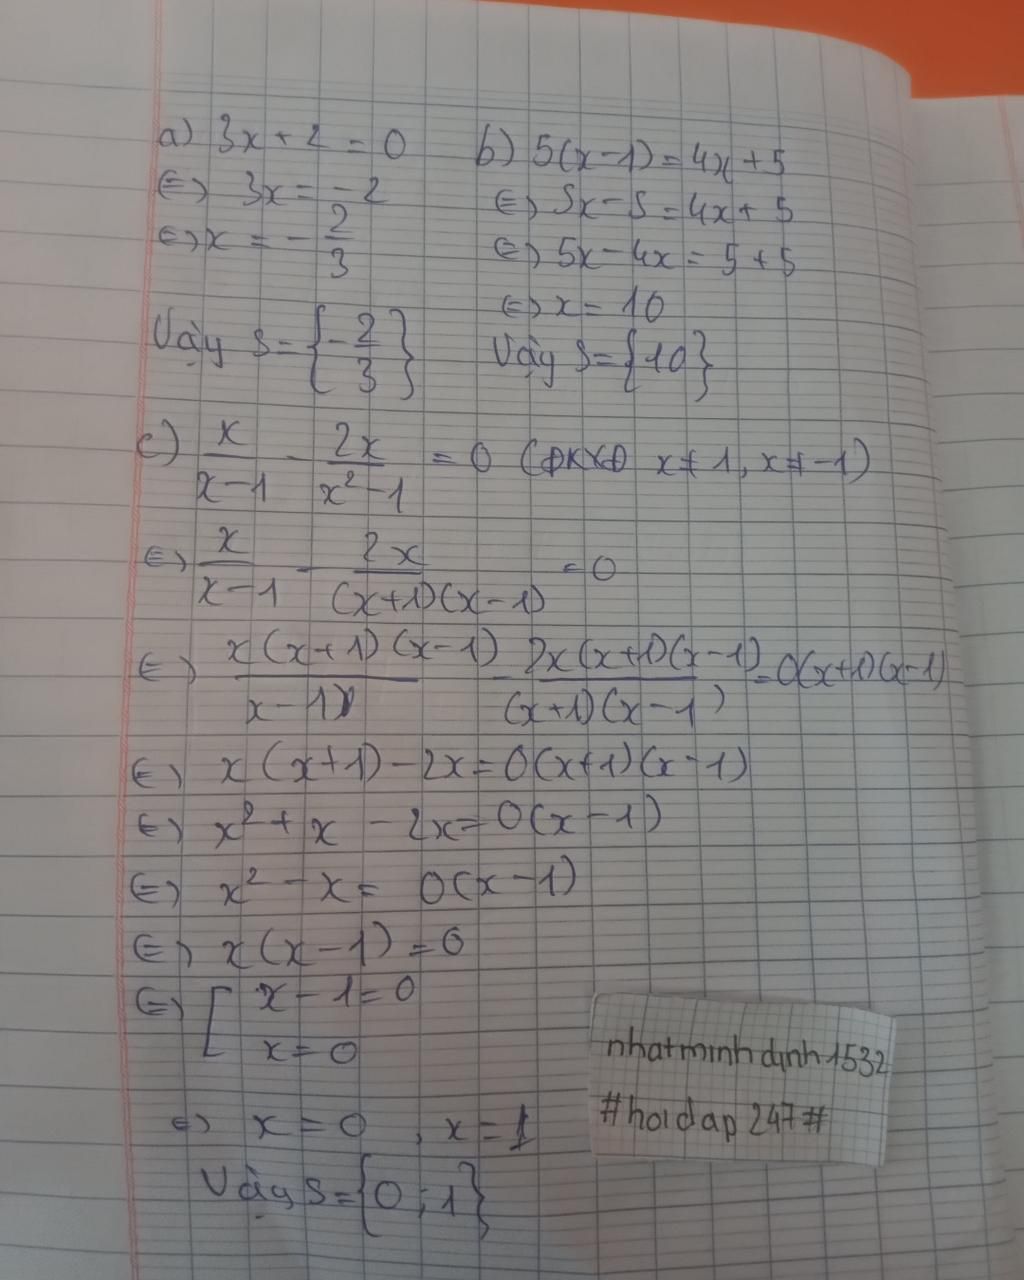 a) 3x + 2 = 0
⇔ 3x = -2
⇔ x = -2/3
Vậy S = {-2/3}
b) 5(x-1) = 4x + 5
⇔ 5x - 5 = 4x + 5
⇔ 5x - 4x = 5 + 5
⇔ x = 10
Vậy S = {10}
c) x/(x-1) - 2x/(x²-1) = 0 (ĐKXĐ x ≠ 1, x ≠ -1)
⇔ x/(x-1) - 2x/((x+1)(x-1)) = 0
⇔ x(x+1)(x-1)/(x-1) - 2x(x+1)(x-1)/((x+1)(x-1)) = 0(x+1)(x-1)
⇔ x(x+1) - 2x = 0(x+1)(x-1)
⇔ x² + x - 2x = 0(x-1)
⇔ x² - x = 0(x-1)
⇔ x(x-1) = 0
⇔ [ x - 1 = 0
x = 0
⇔ x = 0 , x = 1
Vậy S = {0; 1}
nhatminhdinh1532
#hoidap247#